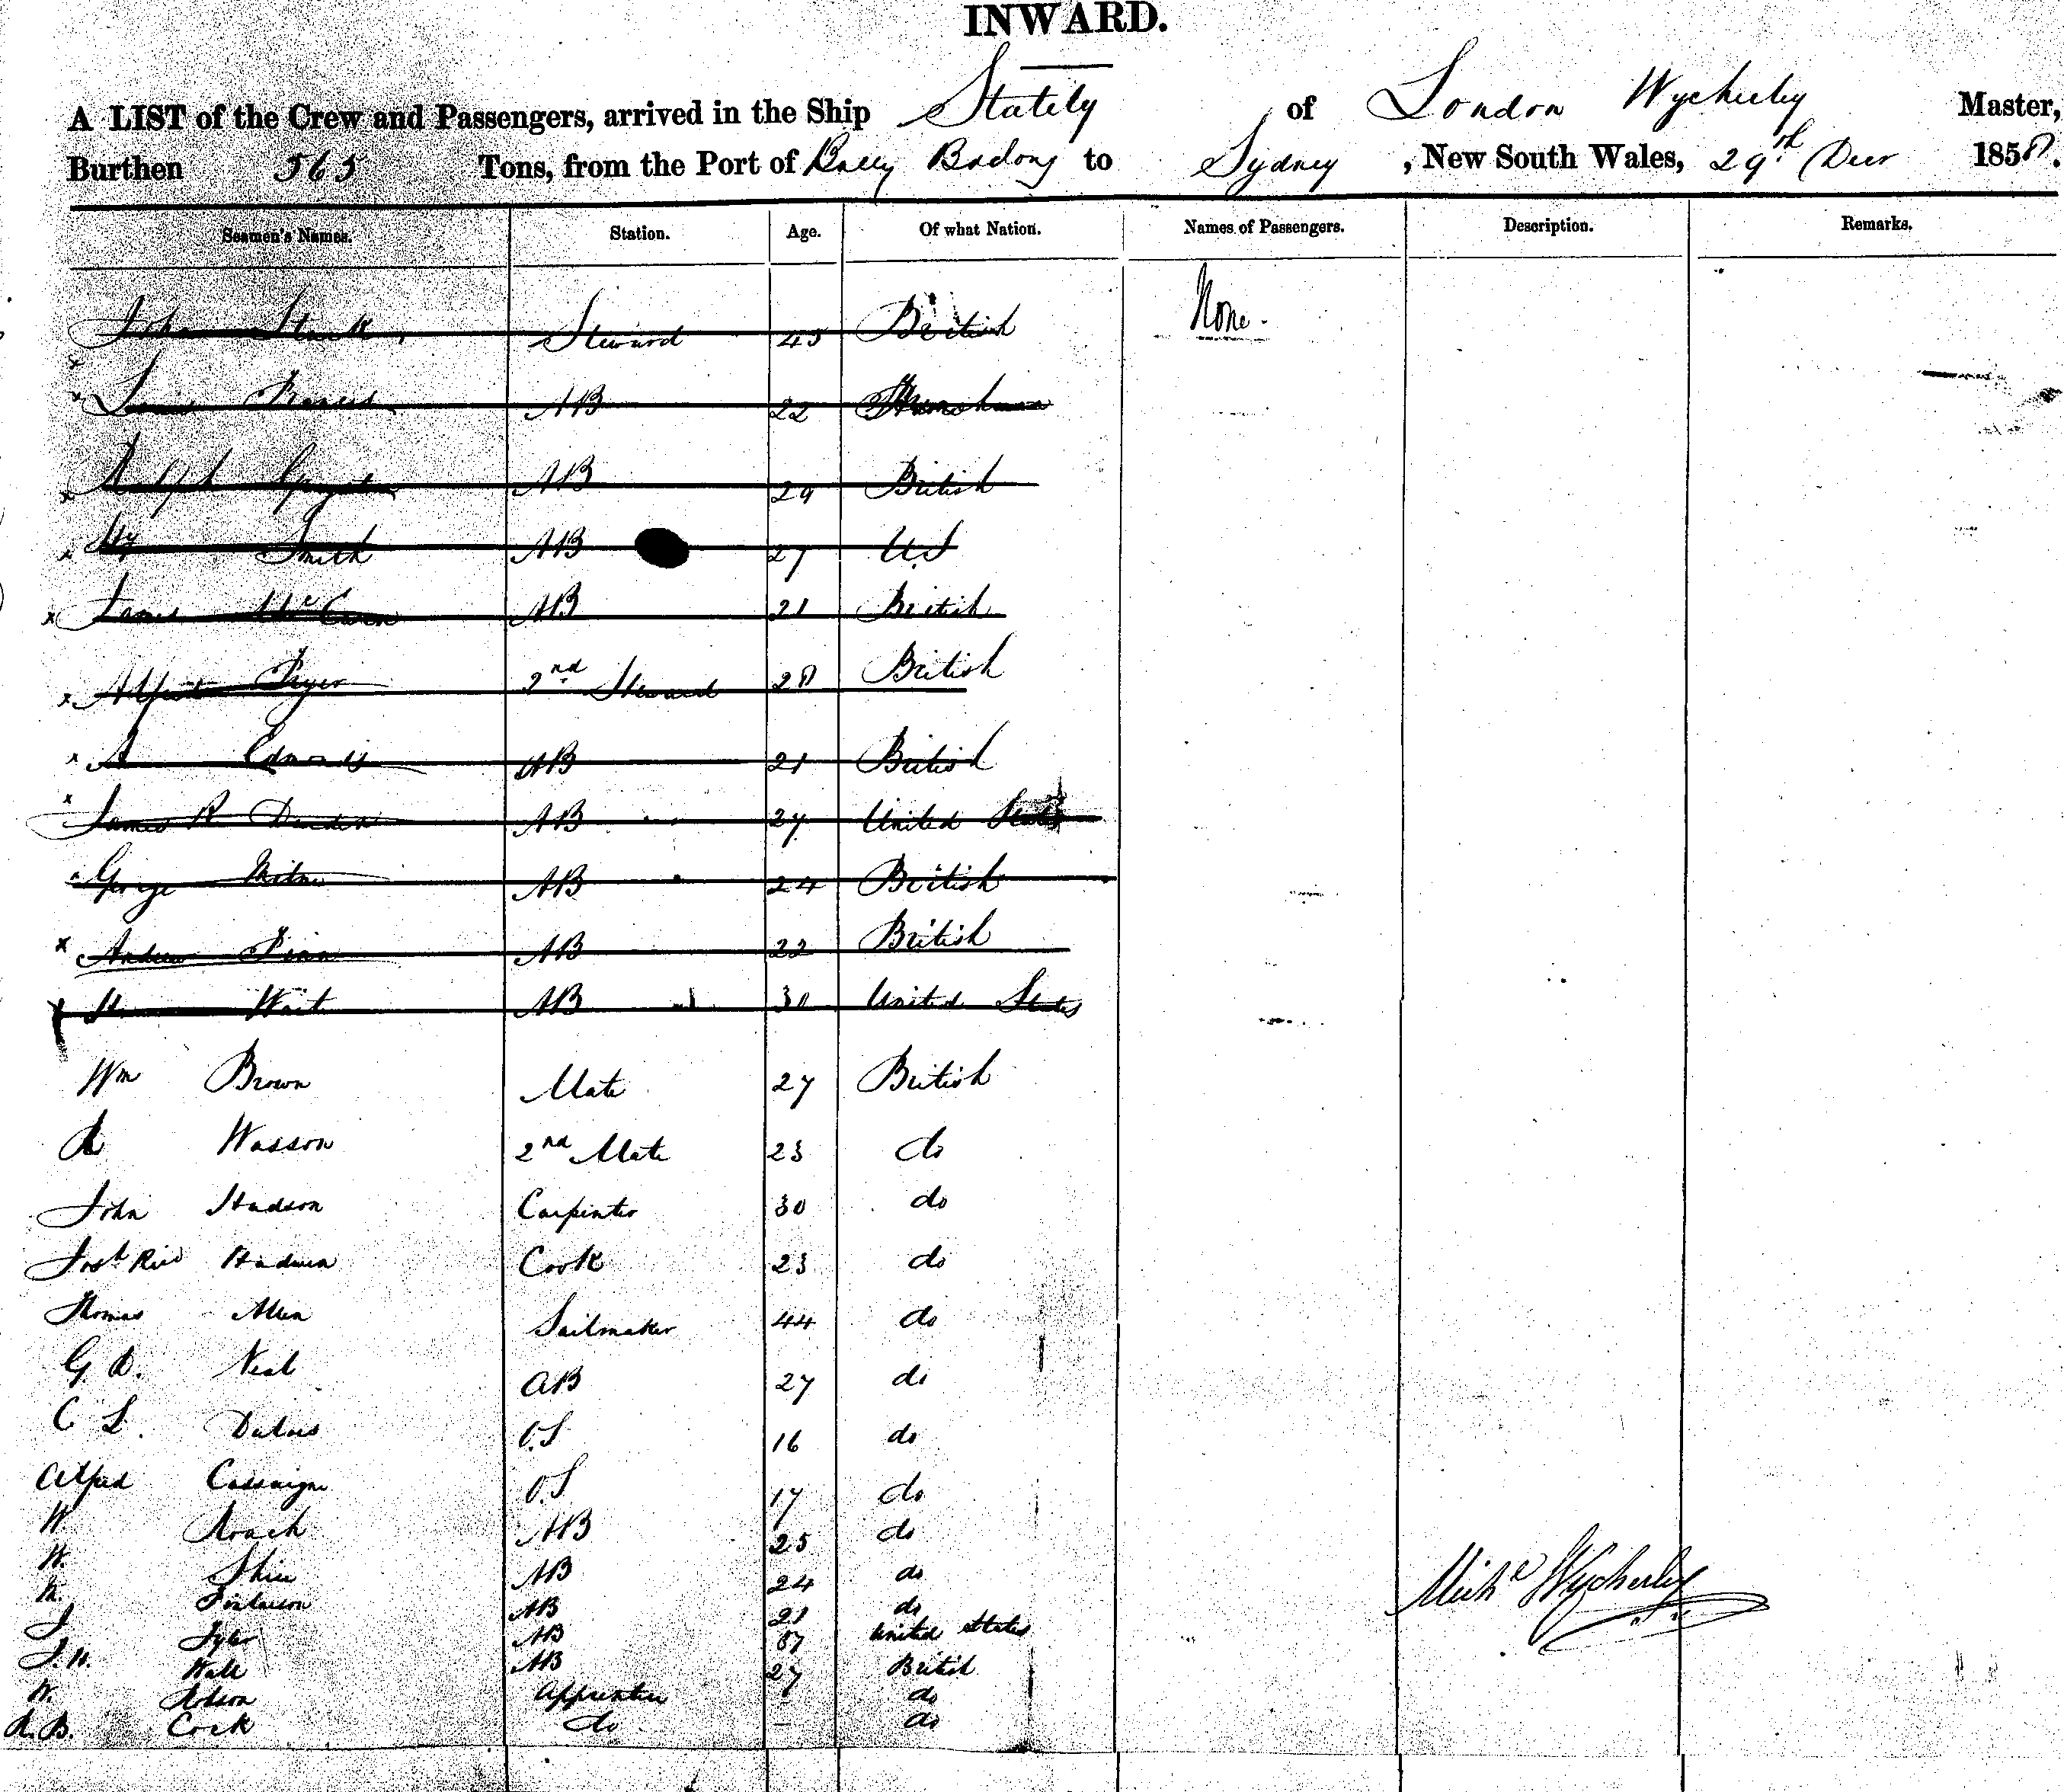 INWARD.
A LIST of the Crew and Passengers, arrived in the Ship Stately of London Wycherley Master,
Burthen 565 Tons, from the Port of Bally Badong to Sydney, New South Wales, 29th Decr 1858.
Seamen's Names. Station. Age. Of what Nation. Names of Passengers. Description. Remarks.
John Steward 45 British None.
x Francis AB 22 Frenchman
x Ralph AB 29 British
x Hy Smith AB 27 U.S
x James McEwen AB 21 British
x Alfred Pryer 2nd Steward 28 British
x A Edmonds AB 21 British
x James R AB 27 United States
x George Milne AB 24 British
x Andrew Finn AB 22 British
H. Wait AB 30 United States
Wm Brown Mate 27 British
R Wasson 2nd Mate 23 do
John Hudson Carpinter 30 do
Cook 23 do
Thomas Allen Sailmaker 44 do
G. D. Neal AB 27 do
C L. O.S 16 do
Alfred O.S 17 do
W Roach AB 25 do
W. AB 24 do
M. Finlaison AB 21 do
J Tyler AB 37 United States
J. H. Hall AB 27 British
W. Robson Apprentice do
R. B. Cock do — do
Michl Wycherley